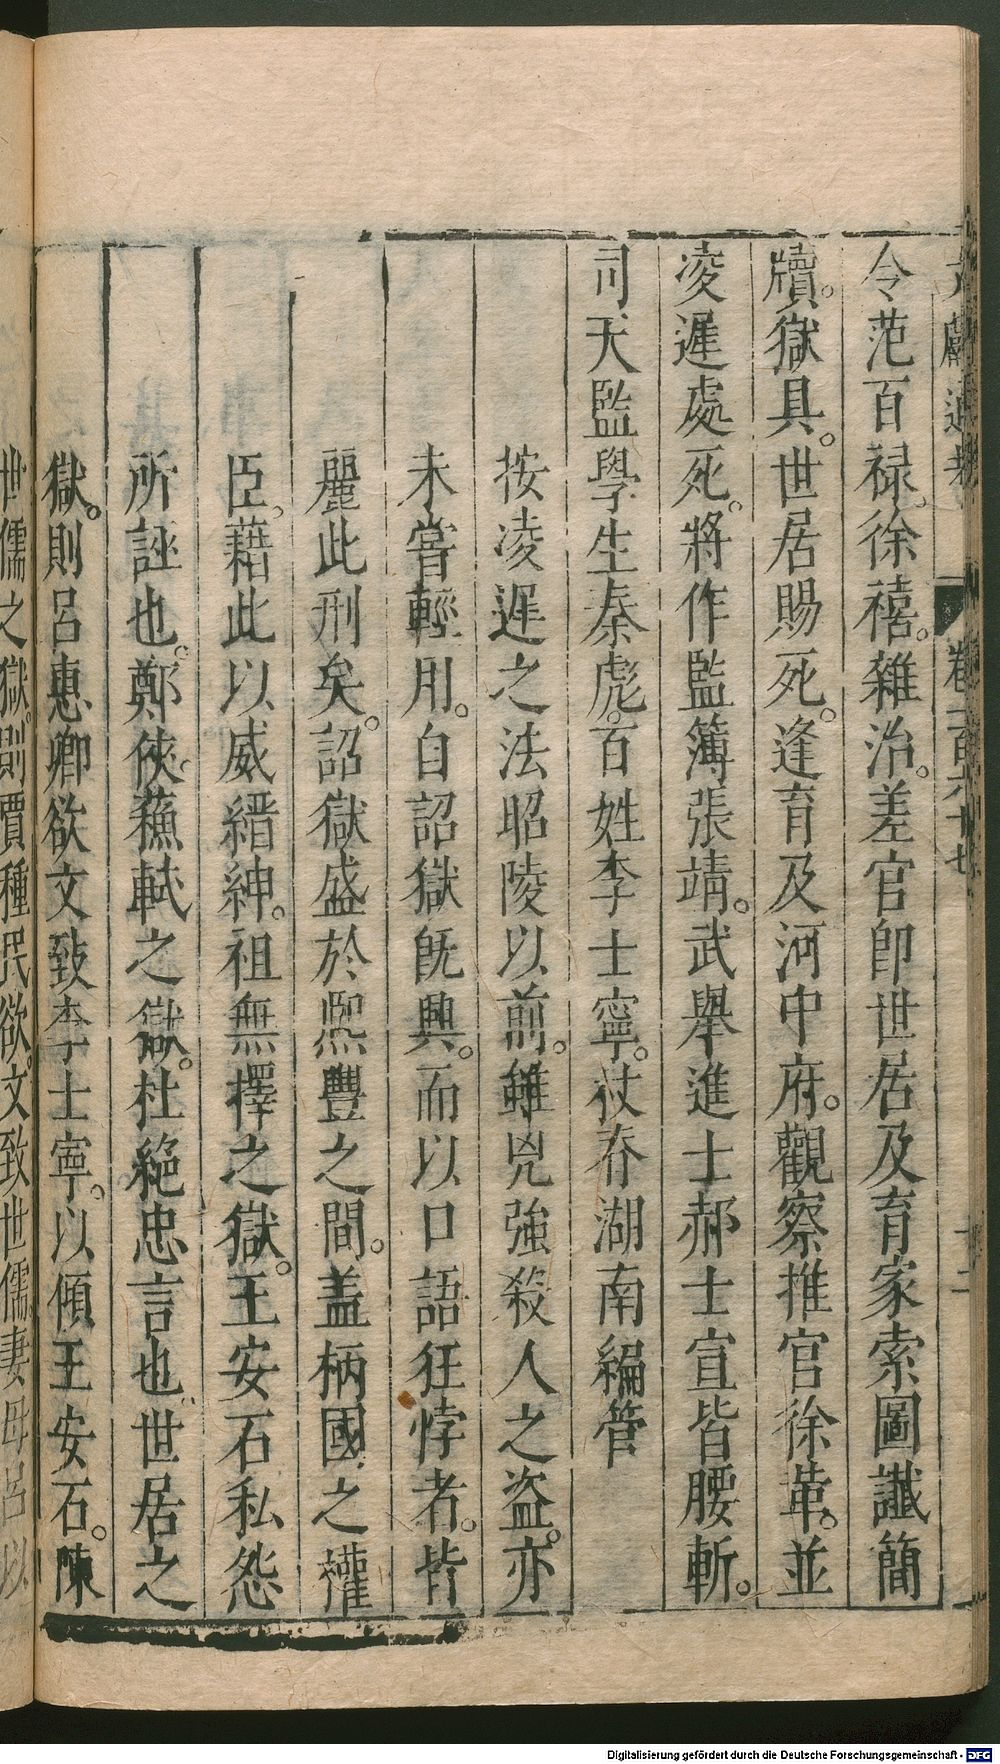 文獻通考 卷一百六十七 十二
令范百祿徐禧雜治差官即世居及育家索圖讖簡
牘獄具世居賜死逢育及河中府觀察推官徐革並
凌遲處死將作監簿張靖武舉進士郝士宣皆腰斬
司天監學生秦彪百姓李士寧杖脊湖南編管
按凌遲之法昭陵以前雖兇強殺人之盜亦
未嘗輕用自詔獄既興而以口語狂悖者皆
麗此刑矣詔獄盛於熙豐之間蓋柄國之權
臣藉此以威縉紳祖無擇之獄王安石私怨
所誣也鄭俠蘇軾之獄杜絕忠言也世居之
獄則呂惠卿欲文致李士寧以傾王安石陳
世儒之獄則賈種民欲文致世儒妻母呂以
Digitalisierung gefördert durch die Deutsche Forschungsgemeinschaft - DFG